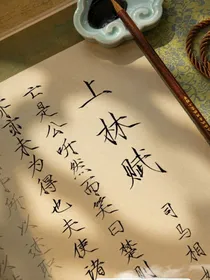 上林赋
司马相
亡是公听然而笑曰楚则
亦未为得也夫使诸